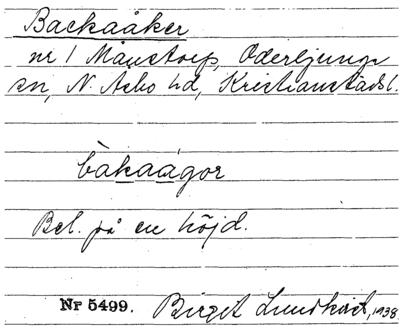 Backaåker
nr 1 Månstorp, Oderljunga
sn, N. Åsbo hd, Kristianstads l.
bàkaágor
Bel. på en höjd.
Nr 5499. Birgit Lundkvist, 1938